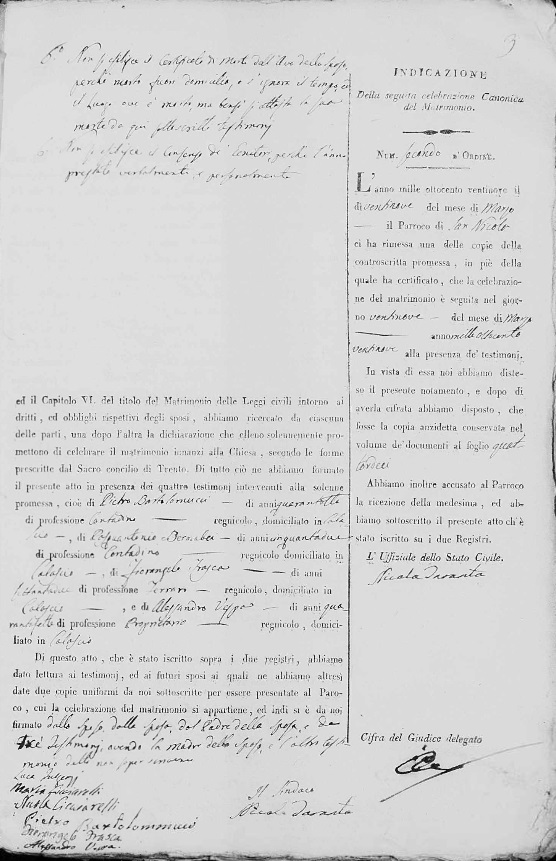 6.° Non si esibisce il certificato di morte dell'Avo dello sposo,
perché morto fuori domicilio, e s'ignora il tempo, ed
il luogo ove è morto, ma bensì si attesta la sua
morte da qui sottoscritti testimonj
Non si esibisce il consenso de' Genitori, perché l'anno
prestato verbalmente, e personalmente
ed il Capitolo VI. del titolo del Matrimonio delle Leggi civili intorno ai
dritti, ed obblighi rispettivi degli sposi, abbiamo ricercato da ciascuna
delle parti, una dopo l'altra la dichiarazione che elleno solennemente pro-
mettono di celebrare il matrimonio innanzi alla Chiesa, secondo le forme
prescritte dal Sacro concilio di Trento. Di tutto ciò ne abbiamo formato
il presente atto in presenza dei quattro testimonj intervenuti alla solenne
promessa, cioè di Pietro Bartolomucci — di anni quarantotto
di professione Contadino — regnicolo, domiciliato in Cala
scio —, di Pasquantonio Bernabei — di anni cinquantadue
di professione Contadino regnicolo domiciliato in
Calascio —, di Fiorangelo Frasca — di anni
di professione Ferraro — regnicolo, domiciliato in
Calascio —, e di Alessandro — di anni qua
rantasette di professione Proprietario — regnicolo, domici-
liato in Calascio
Di questo atto, che è stato iscritto sopra i due registri, abbiamo
dato lettura ai testimonj, ed ai futuri sposi ai quali ne abbiamo altresì
date due copie uniformi da noi sottoscritte per essere presentate al Paro-
co, cui la celebrazione del matrimonio si appartiene, ed indi si è da noi
firmato dallo sposo, dalla sposa, dal Padre della sposa, e da
tre testimonj, avendo la madre dello sposo, e l'altro testi
monio detto non saper scrivere
Luca
Maria Ciccarelli
Nicola Ciccarelli
Pietro Bartolommucci
Fiorangelo Frasca
Alessandro
Il Sindaco
Nicola Taranta
INDICAZIONE
Della seguita celebrazione Canonica
del Matrimonio.
Num. secondo d'Ordine.
L'anno mille ottocento ventinove il
di ventinove del mese di Marzo
— il Parroco di San Nicola
ci ha rimessa una delle copie della
controscritta promessa, in piè della
quale ha certificato, che la celebrazio-
ne del matrimonio è seguita nel gior-
no ventinove — del mese di Marzo
— anno mille ottocento
ventinove alla presenza de' testimonj.
In vista di essa noi abbiamo diste-
so il presente notamento, e dopo di
averla cifrata abbiamo disposto, che
fosse la copia anzidetta conservata nel
volume de' documenti al foglio quat
tordici
Abbiamo inoltre accusato al Parroco
la ricezione della medesima, ed ab-
biamo sottoscritto il presente atto ch'è
stato iscritto su i due Registri.
L' Uffiziale dello Stato Civile.
Nicola Taranta
Cifra del Giudice delegato